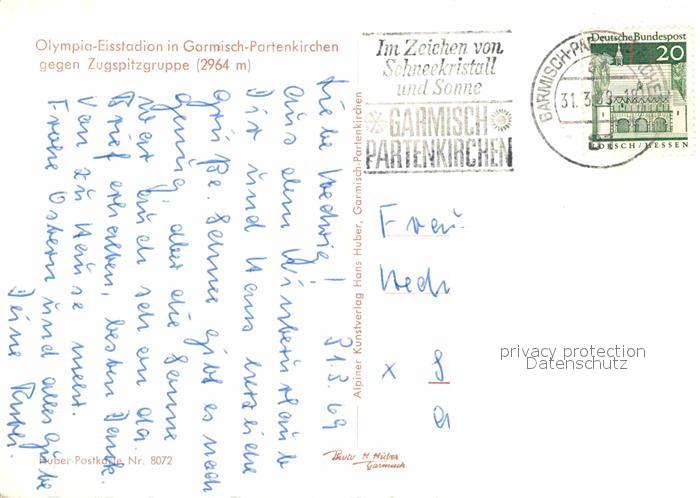 Olympia-Eisstadion in Garmisch-Partenkirchen
gegen Zugspitzgruppe (2964 m)
Im Zeichen von
Schneekristall
und Sonne
GARMISCH
PARTENKIRCHEN
GARMISCH-PA
31.3.69
Deutsche Bundespost
20
LORSCH/HESSEN
Liebe Hedwig! 31.3.69
Aus dem Winterurlaub
Dir und Hans herzliche
Grüße. Schnee gibt es noch
genug, aber die Sonne
war auch schon da.
Brief erhalten, besten Dank.
Von zu Hause mehr.
Frohe Ostern und alles Gute
Deine
Alpiner Kunstverlag Hans Huber, Garmisch-Partenkirchen
Frau
Hedw
x 8
privacy protection
Datenschutz
Huber-Postkarte Nr. 8072
Photo H. Huber
Garmisch